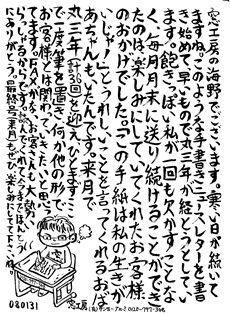 窓工房の海野でございます。寒い日が続いて
ますね。このような手書きニュースレターを書
き始めて、早いもので丸三年が経とうとしてい
ます。飽きっぽい私が一回も欠かすことな
く、毎月月末に送り続けることができ
たのは、楽しみにしてくれたお客様
のおかげでした。「この手紙は私の生きが
いじゃ」とうれしいことを言ってくれるおば
あちゃんもいたんです。来月で
丸三年(計36回)を迎え、ひとまずここ
で一度筆を置き、何か他の形で
お客様とは関わっていきたいと思い
ます。FAXがくるお客さんも大勢
らっしゃるからです。読んでくれて今まで
にありがとう。最終号(来月)もぜひ楽しみにして下さいね。
080131
窓工房
(有)サンユーアルミ 0120-797-345